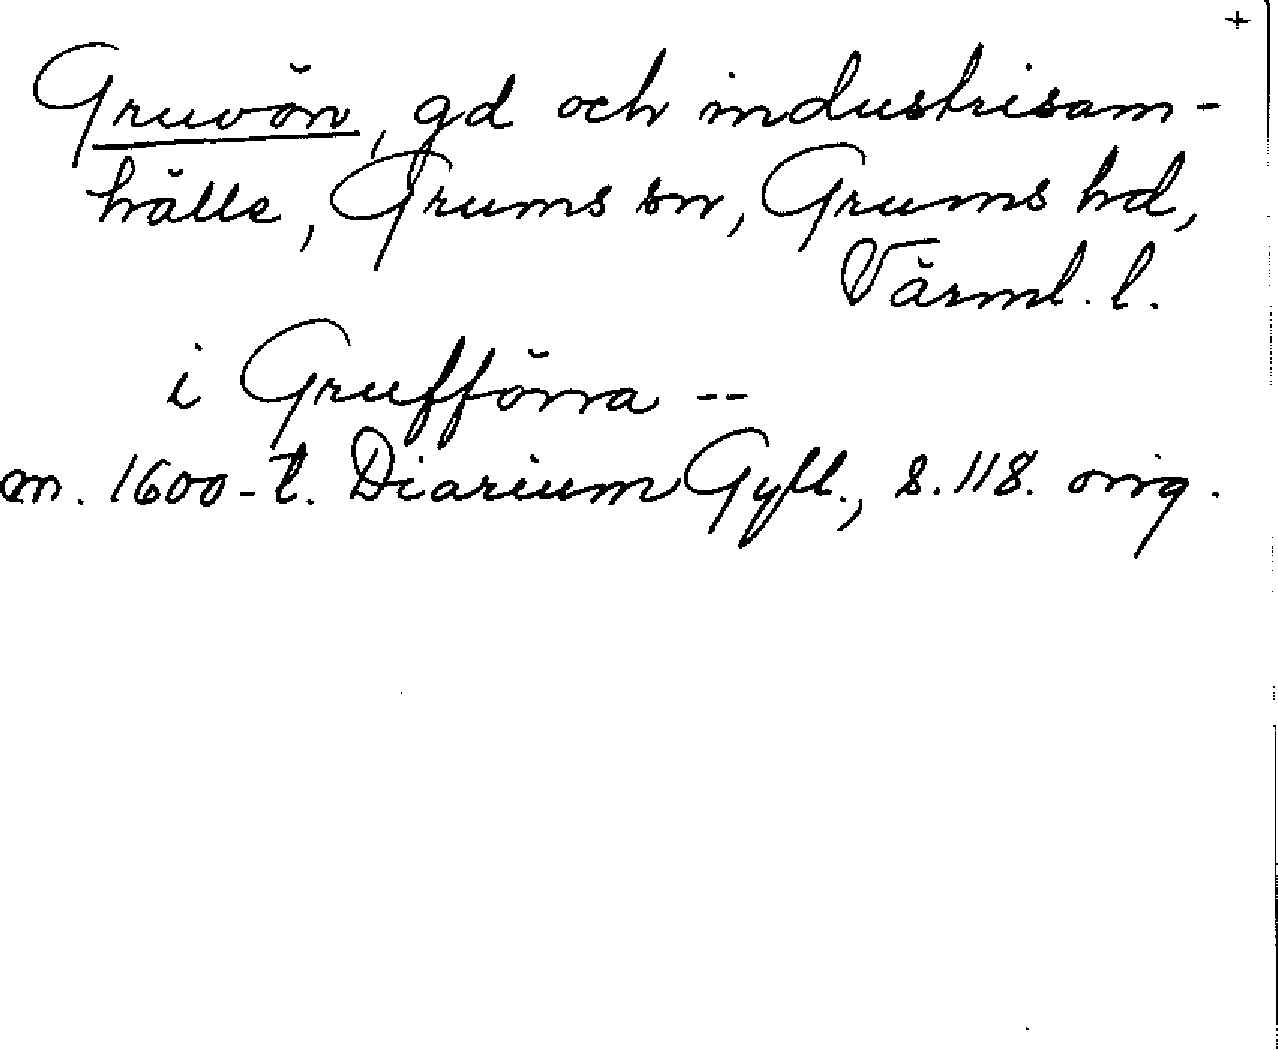 +
Gruvön, gd och industrisam-
hälle, Grums sn, Grums hd,
Värml. l.
i Grufföna --
m. 1600-t. Diarium Gyll., s. 118. orig.